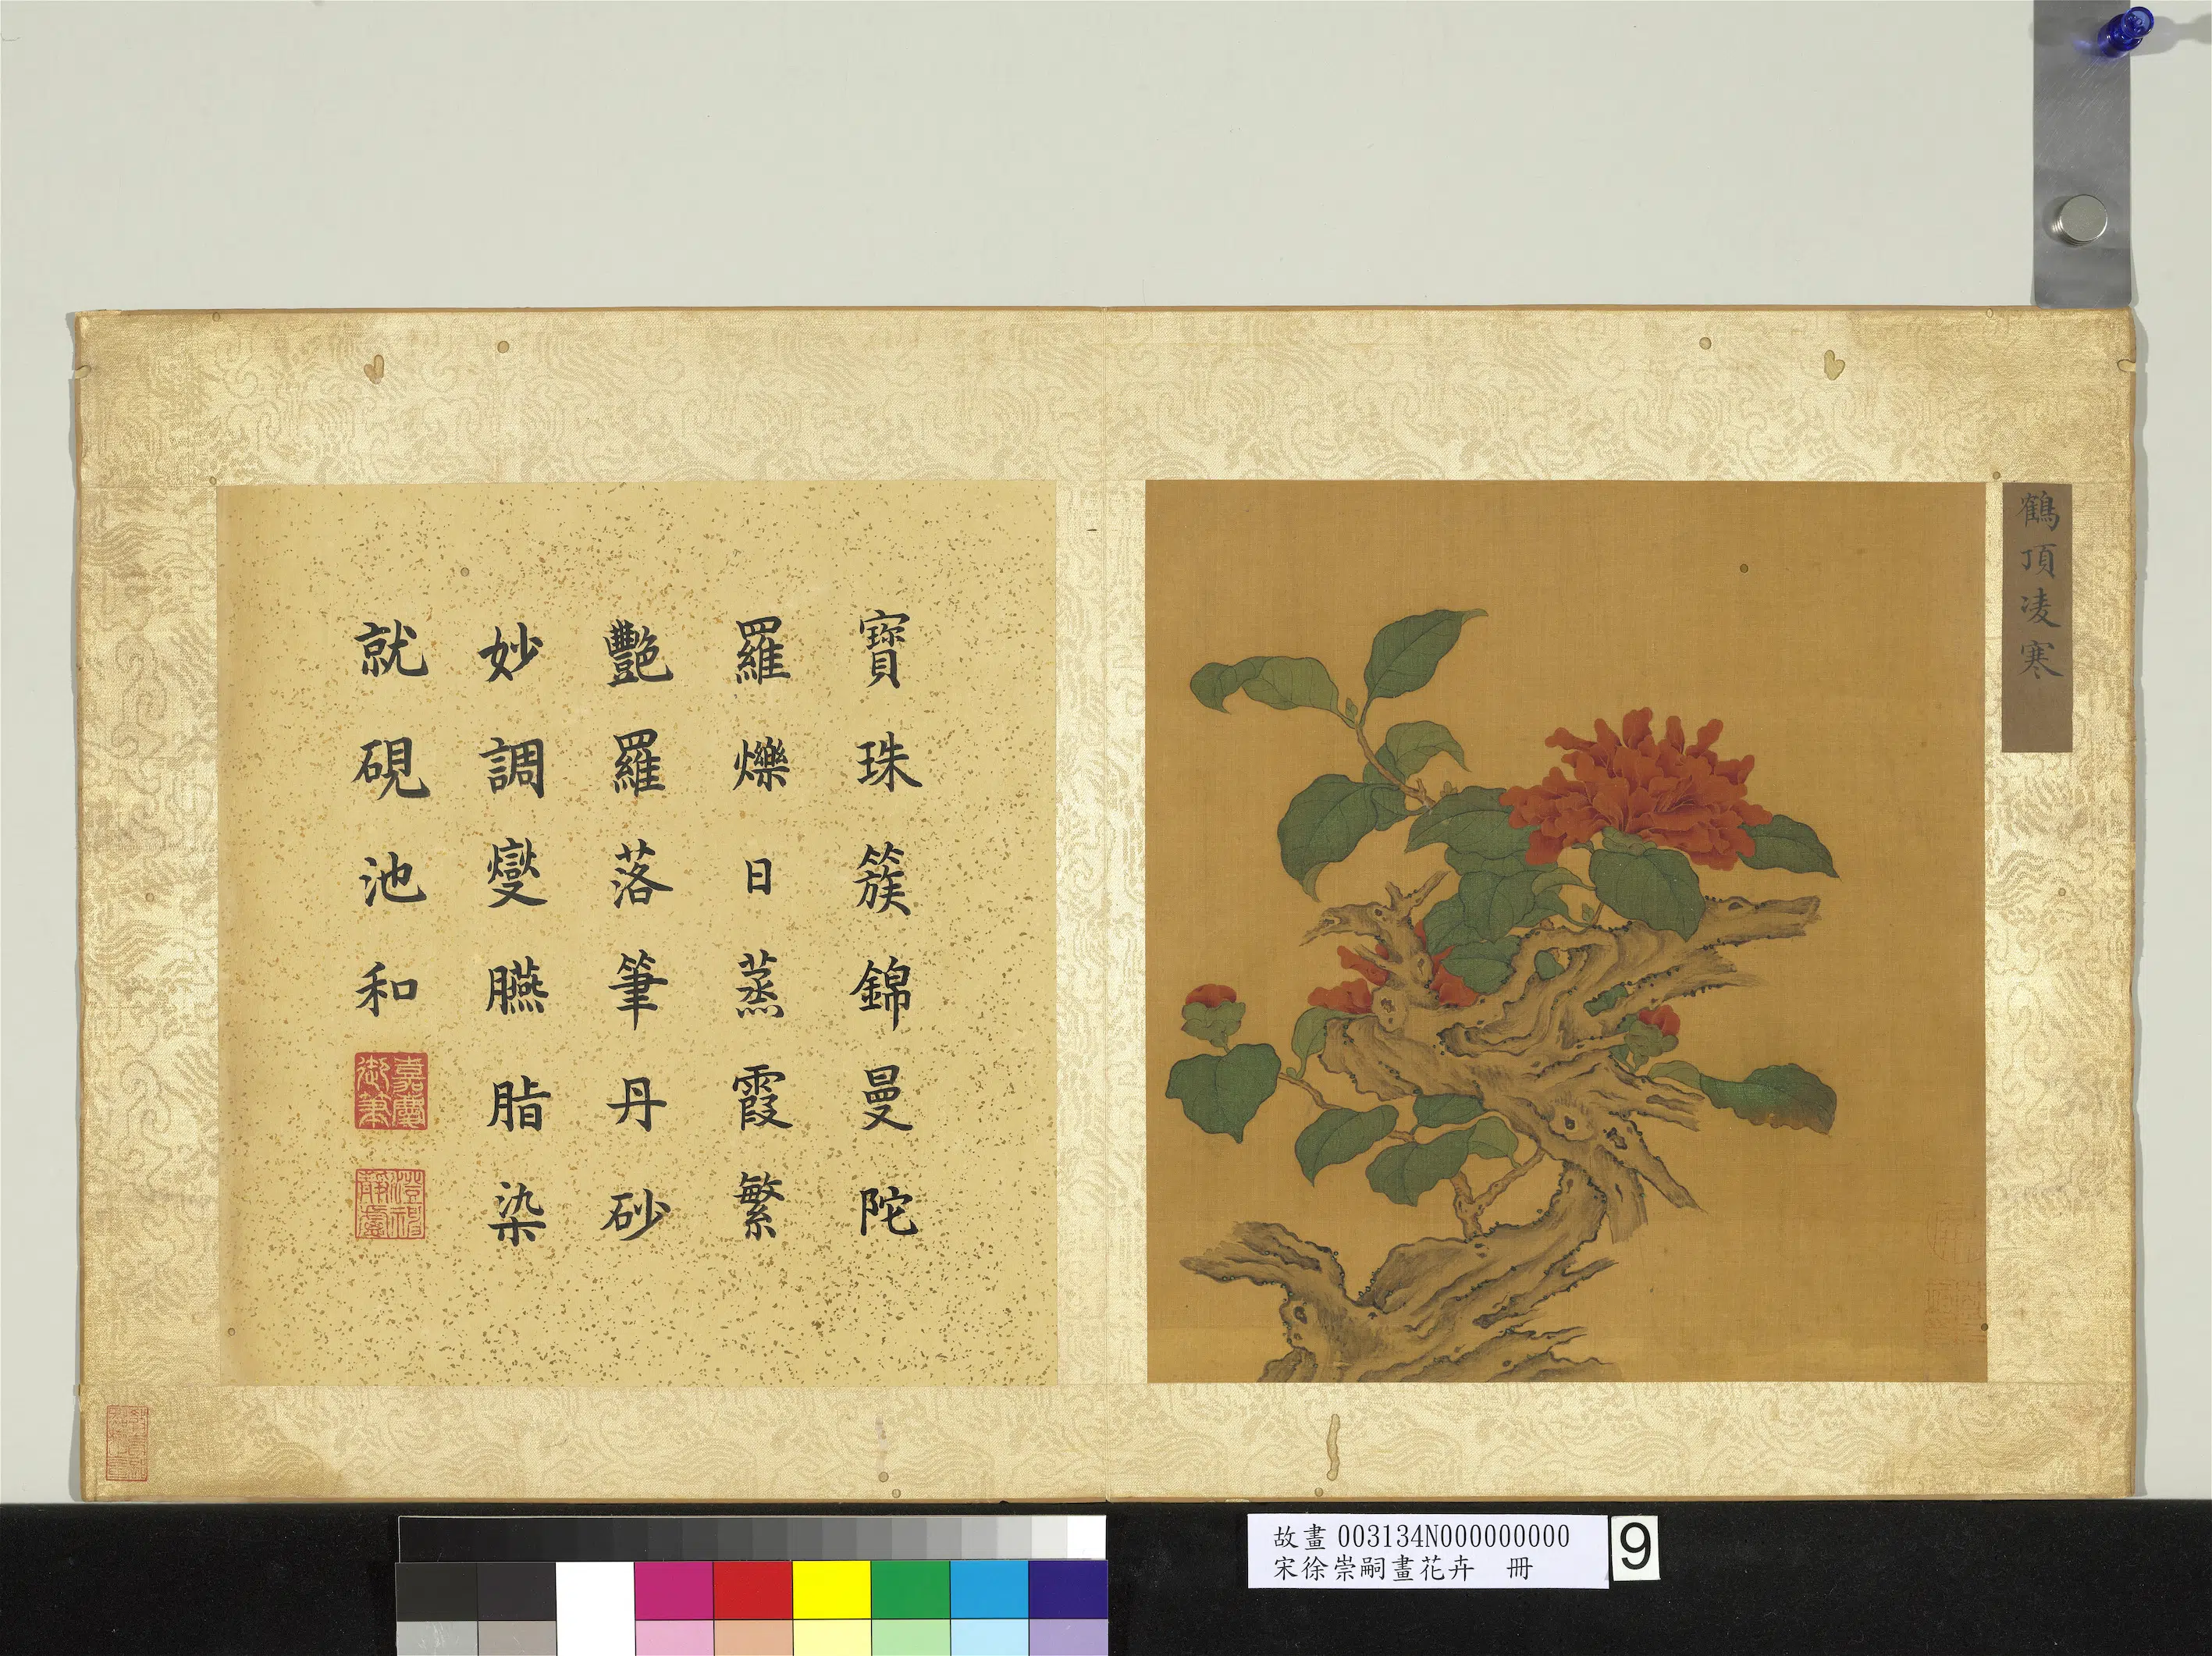 鶴頂凌寒
寶珠簇錦曼陀
羅爍日蒸霞繁
豔羅落筆丹砂
妙調燮臙脂染
就硯池和
嘉慶御筆
澄視靜慮
故畫003134N000000000
宋徐崇嗣畫花卉　冊
9